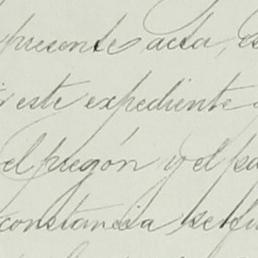 presente acta, es
este expediente
el pregón y el pa
constancia